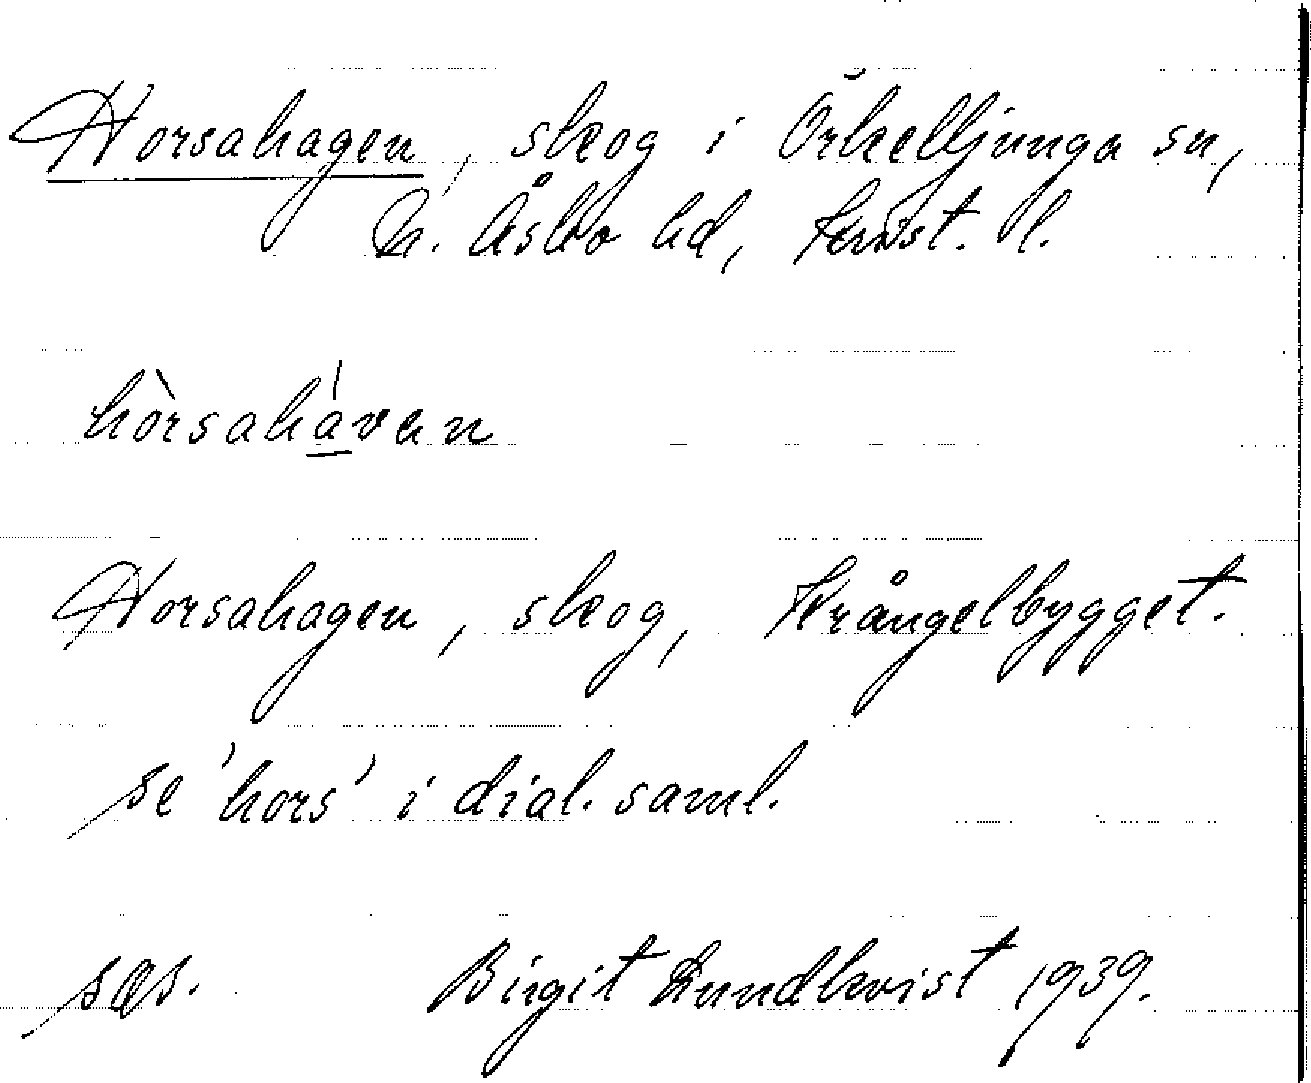 Horsahagen, skog i Örkelljunga sn,
N. Åsbo hd, Krist. l.
hòrsahávan
Horsahagen, skog, Krångelbygget.
se 'hors' i dial. saml.
sgs. Birgit Lundkvist 1939.